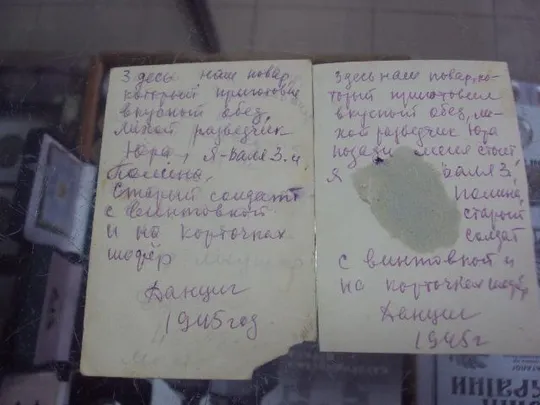 Здесь наш повар,
который приготовил
вкусный обед,
лихой разведчик
Юра, я-Валя З. и
Полина,
Старый солдат
с винтовкой
и на корточках
шофёр
Данциг
1945 год
Здесь наш повар, ко-
торый приготовил
вкусный обед, ли-
хой разведчик Юра
позади меня стоит
я Валя З,
Полина,
старый
солдат
с винтовкой и
на корточках шофёр
Данциг
1945 г